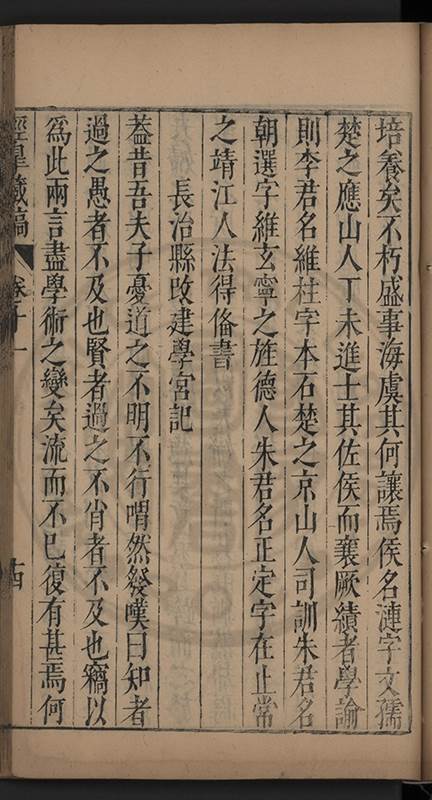 培養矣不朽盛事海虞其何讓焉侯名漣字文孺
楚之應山人丁未進士其佐侯而襄厥績者學諭
則李君名維柱字本石楚之京山人司訓朱君名
朝選字維玄寧之旌德人朱君名正定字在止常
之靖江人法得備書
長治縣改建學宮記
葢昔吾夫子憂道之不明不行喟然發嘆曰知者
過之愚者不及也賢者過之不肖者不及也竊以
為此兩言盡學術之變矣流而不已復有甚焉何
經皐藏稿
卷十一
十四